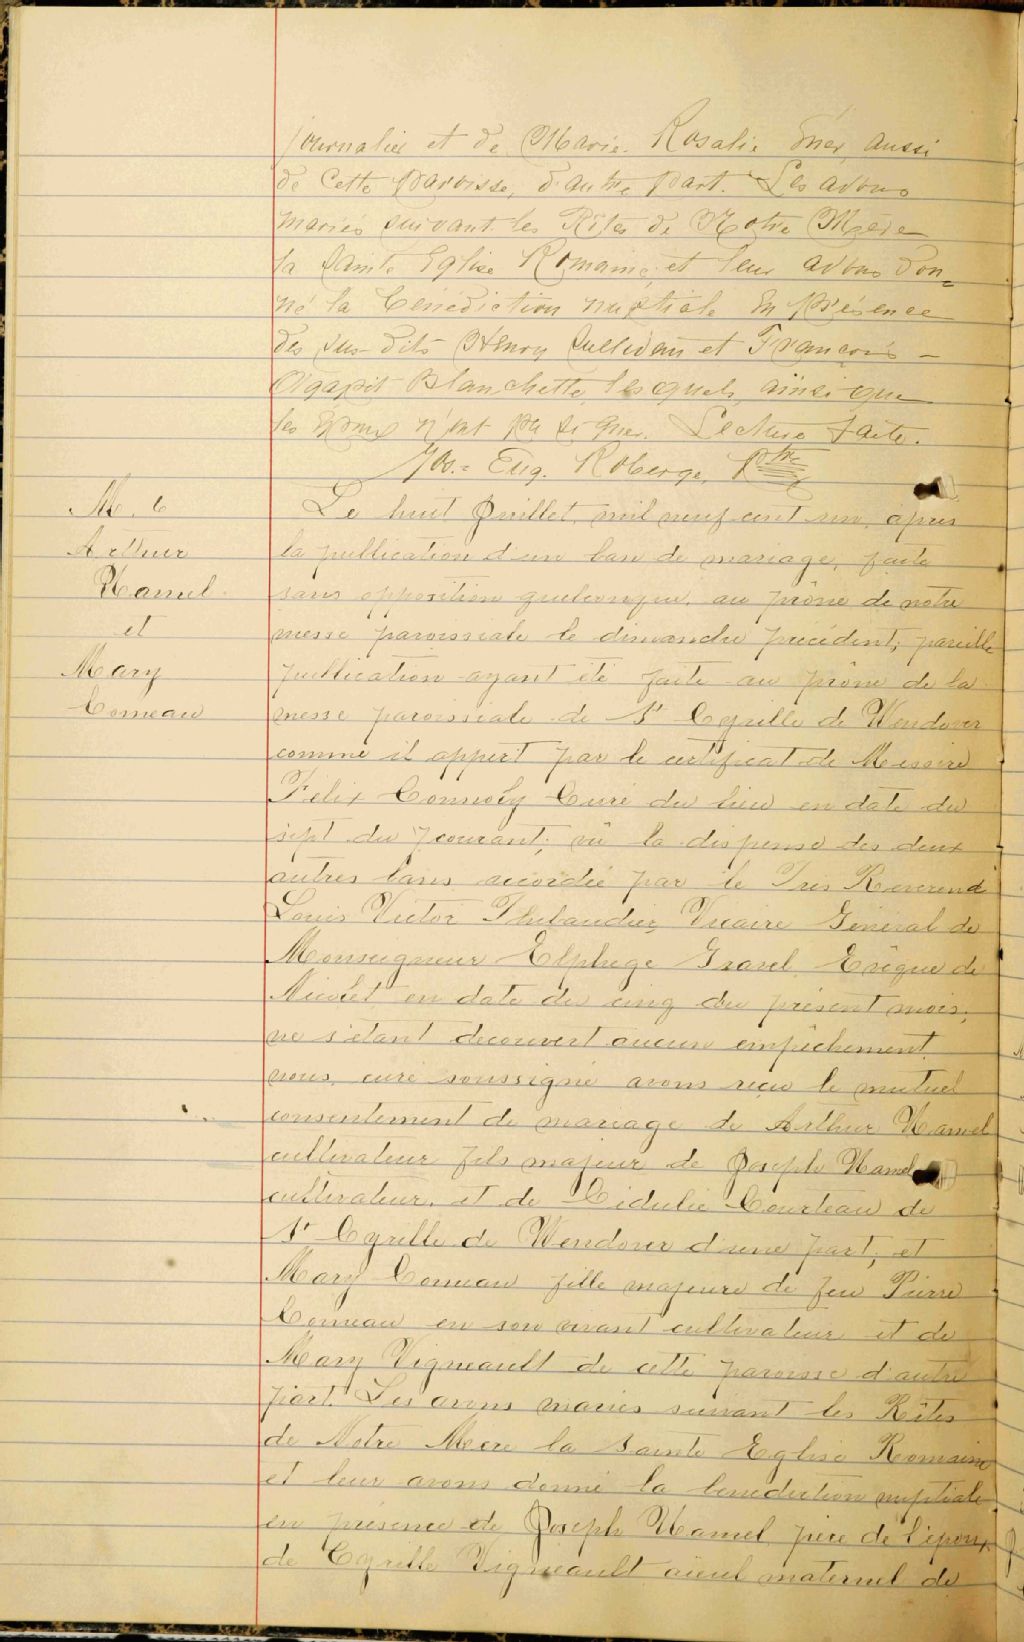 journalier et de Marie Rosalie aussi
de cette Paroisse, d'autre part. Les avons
mariés suivant les Rites de Notre Mère
la Sainte Eglise Romaine, et leur avons don=
né la bénédiction nuptiale en présence
des sus dits Henry Sullivan et François -
Agapit Blanchette, lesquels, ainsi que
les Epoux n'ont pu signer. Lecture faite.
Jos.= Eug. Roberge, Ptre
M. 6
Arthur
Hamel
et
Mary
Comeau
Le huit Juillet, mil neuf cent un, après
la publication d'un ban de mariage, faite
sans opposition quelconque, au prône de notre
messe paroissiale le dimanche précédent; pareille
publication ayant été faite au prône de la
messe paroissiale de St Cyrille de Wendover
comme il appert par le certificat de Messire
Félix Connoly Curé du lieu en date du
sept du courant; vû la dispense des deux
autres bans accordée par le Tres Reverend
Louis Victor Thibaudier, Vicaire Général de
Monseigneur Elphege Gravel, Evêque de
Nicolet en date du cinq du présent mois;
ne s'étant decouvert aucun empêchement,
nous, curé soussigné avons reçu le mutuel
consentement de mariage de Arthur Hamel
cultivateur fils majeur de Joseph Hamel
cultivateur, et de Cédulie Courteau de
St Cyrille de Wendover d'une part; et
Mary Comeau fille majeure de feu Pierre
Comeau en son vivant cultivateur et de
Mary Vigneault de cette paroisse d'autre
part. Les avons mariés suivant les Rites
de Notre Mere la Sainte Eglise Romaine
et leur avons donné la benediction nuptiale
en présence de Joseph Hamel, père de l'époux,
de Cyrille Vigneault aïeul maternel de